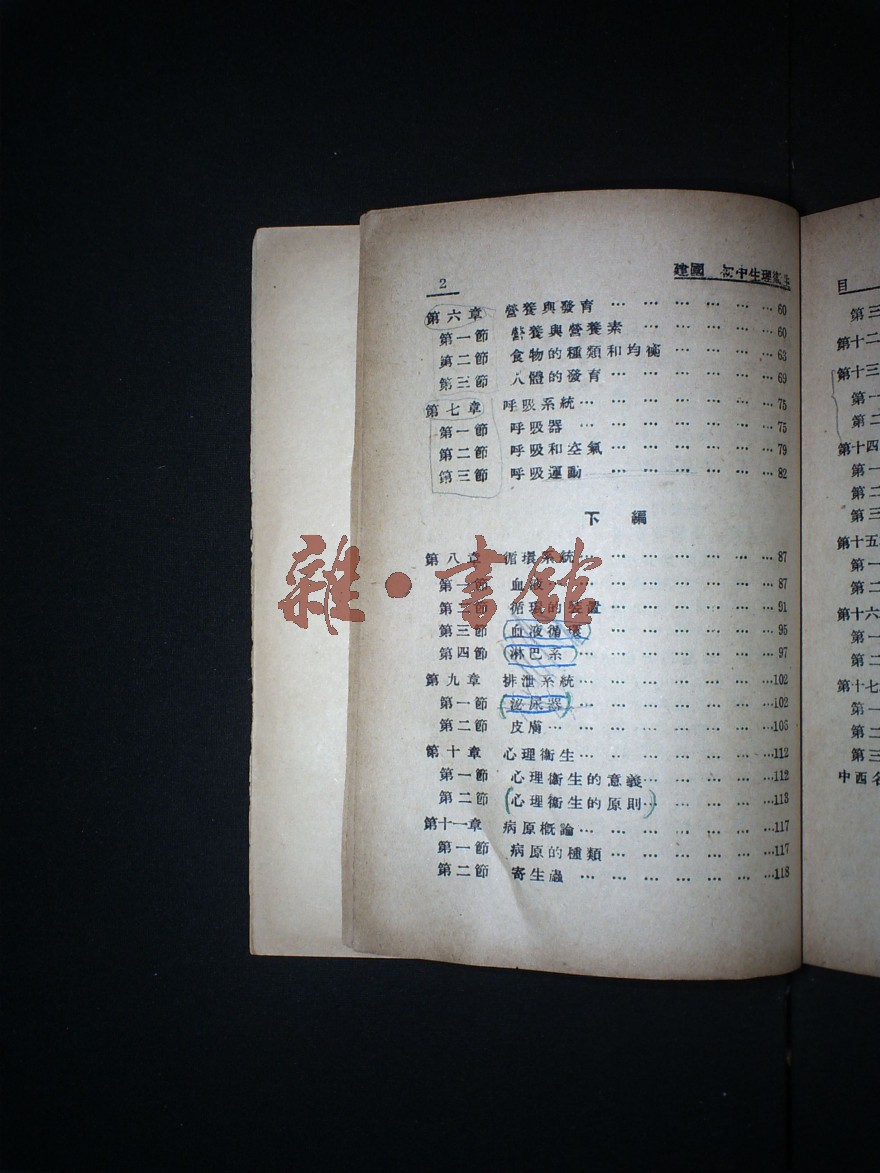 2
建國 初中生理衞生
第六章 營養與發育 … … … … … …60
第一節 營養與營養素 … … … … …60
第二節 食物的種類和均衡 … … … …63
第三節 人體的發育 … … … … … …69
第七章 呼吸系統… … … … … … …75
第一節 呼吸器 … … … … … … …75
第二節 呼吸和空氣… … … … … …79
第三節 呼吸運動 … … … … … …82
下編
第八章 循環系統… … … … … … …87
第一節 血液… … … … … … … …87
第二節 循環的裝置 … … … … … …91
第三節 血液循環 … … … … … …95
第四節 淋巴系… … … … … … …97
第九章 排泄系統… … … … … … …102
第一節 泌尿器 … … … … … … …102
第二節 皮膚… … … … … … … …105
第十章 心理衞生… … … … … … …112
第一節 心理衞生的意義… … … … …112
第二節 心理衞生的原則… … … … …113
第十一章 病原概論… … … … … … …117
第一節 病原的種類 … … … … … …117
第二節 寄生蟲 … … … … … … …118
目
第三
第十二
第十三
第一
第二
第十四
第一
第二
第三
第十五
第一
第二
第十六
第一
第二
第十七
第一
第二
第三
中西名
雜·書館